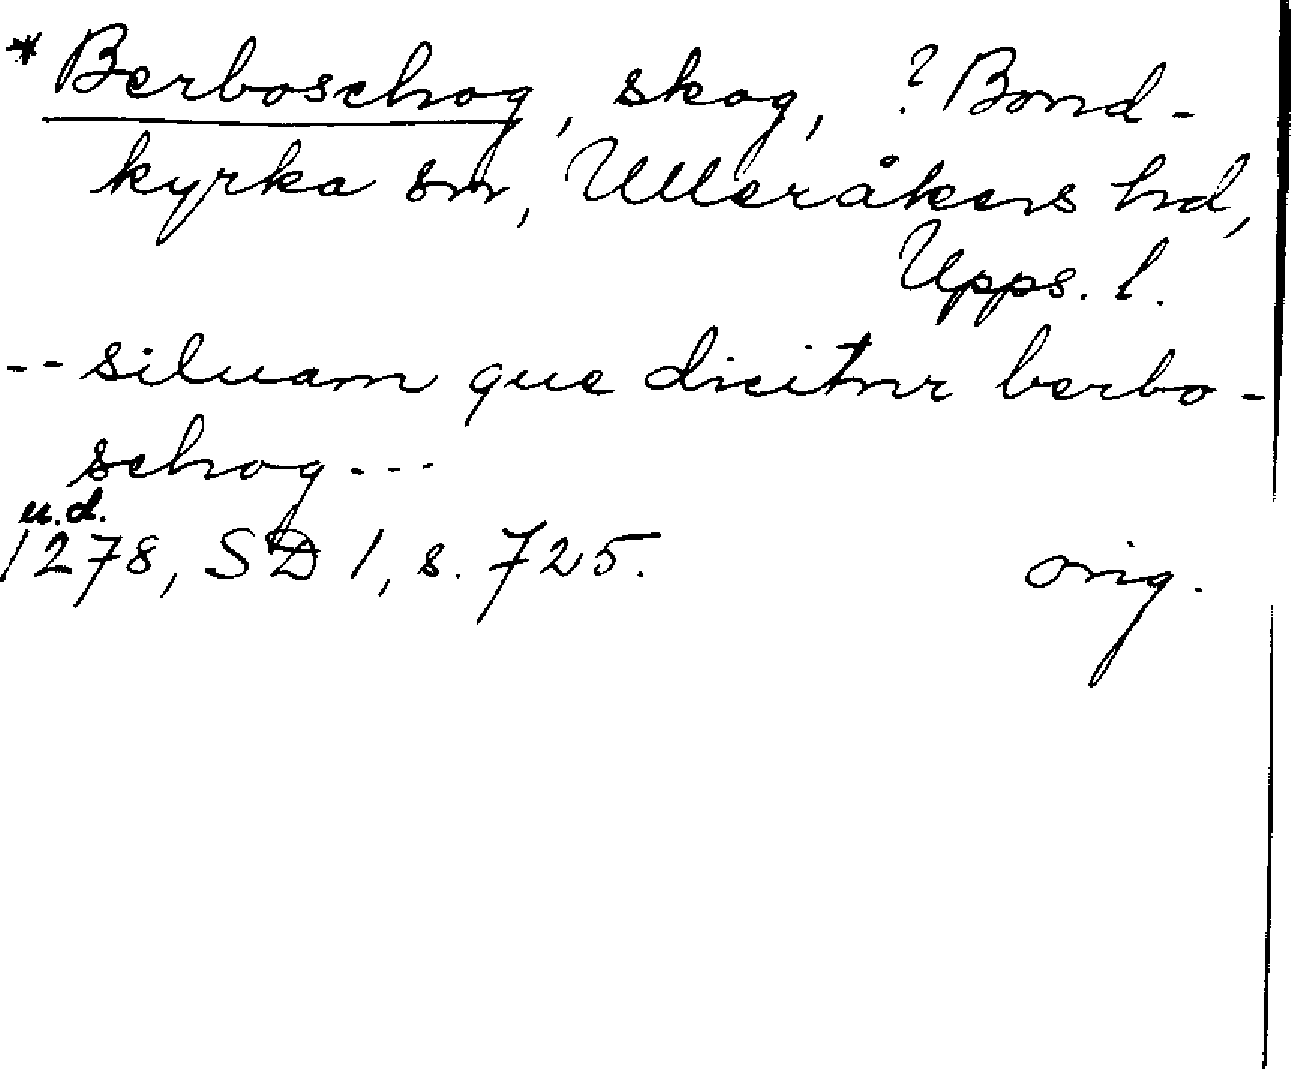 *Berboschog, skog, ? Bond-
kyrka sn, Ulleråkers hd,
Upps. l.
-- siluam que dicitur berbo-
schog ---
u.d.
1278, SD 1, s. 725. orig.